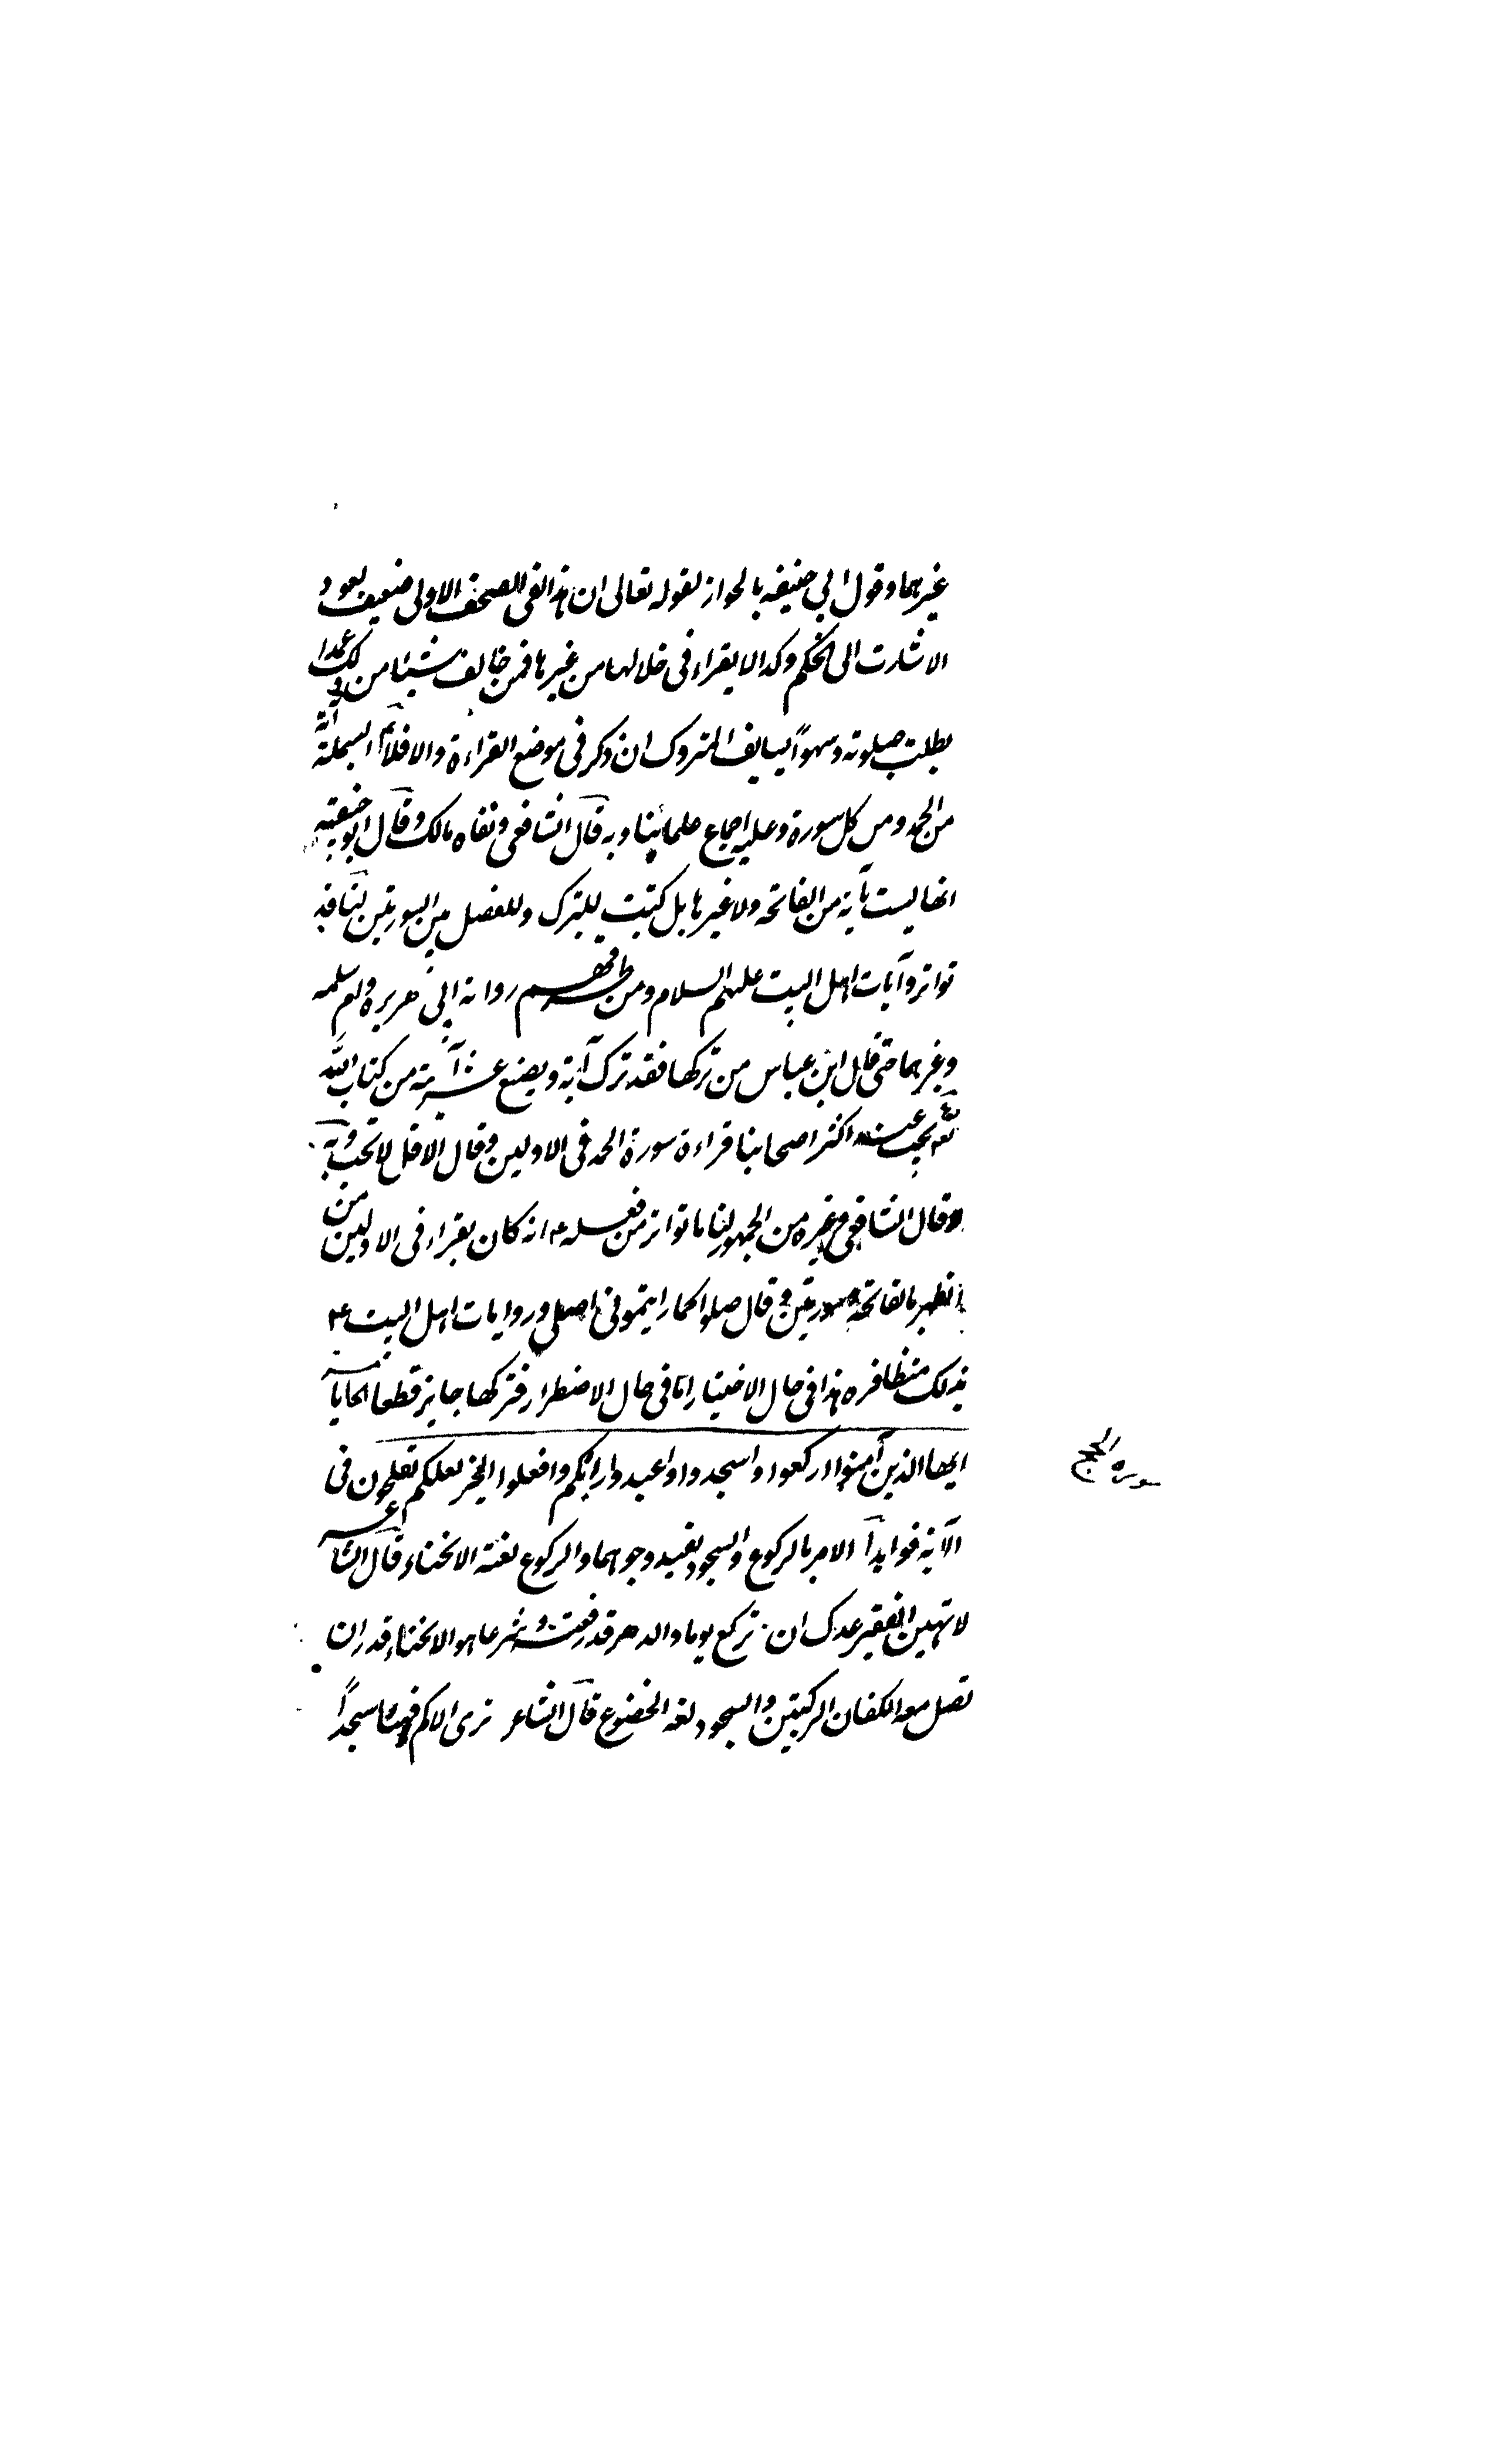 غيرهما وقول ابي حنيفه بالجواز لقوله تعالى ان هذا لفى الصحف الاولى ضعيف لعود
الاشارت الى الحكم وكذا لا يقراء فى خلالها من غيرها فمن خالف شيئا من ذلك عمدا
بطلت صلوته وسهواً يستانف المتروك ان ذكر فى موضع القراءة والا فلا البسملة آية
من الحمد ومن كل سورة وعليه اجماع علمائنا وبه قال الشافعى ونفاه مالك وقال ابو حنيفه
انها ليست بآية من الفاتحه ولا غيرها بل كتبت للتبرك وللفصل بين السورتين لنا فيه
تواتر وآيات اهل البيت عليهم السلام ومن طرقهم رواية ابى هريره وام سلمه
وغيرهما حتى قال ابن عباس من تركها فقد ترك آية من كتاب الله
يجب عند اكثر اصحابنا قراءة سورة الحمد فى الاولين وقال الاقل لا تجب وبه
وقال الشافعى وغيره من الجمهور لنا ما تواتر من فعله ع انه كان يقراء فى الاوليين من
الظهر بالفاتحة وسورتين وقال صلوا كما رايتمونى اصلى وروايات اهل البيت ع
بذلك متظافره هذا فى حال الاختيار اما فى حال الاضطرار فتركها جايز قطعا الخامسة يا
ايها الذين آمنوا اركعوا واسجدوا واعبدوا ربكم وافعلوا الخير لعلكم تفلحون فى
الآية فوايد آ الامر بالركوع والسجود يفيد وجوبهما والركوع لغة الانحناء قال الشاعر
لا تهين الفقير علك ان تركع يوما والدهر قد رفعه وشرعا هو الانحناء قدر ان
تصل معه الكفان الركبتين والسجود لغه الخضوع قال الشاعر ترى الاكم فيها سجداً
سوره الحج